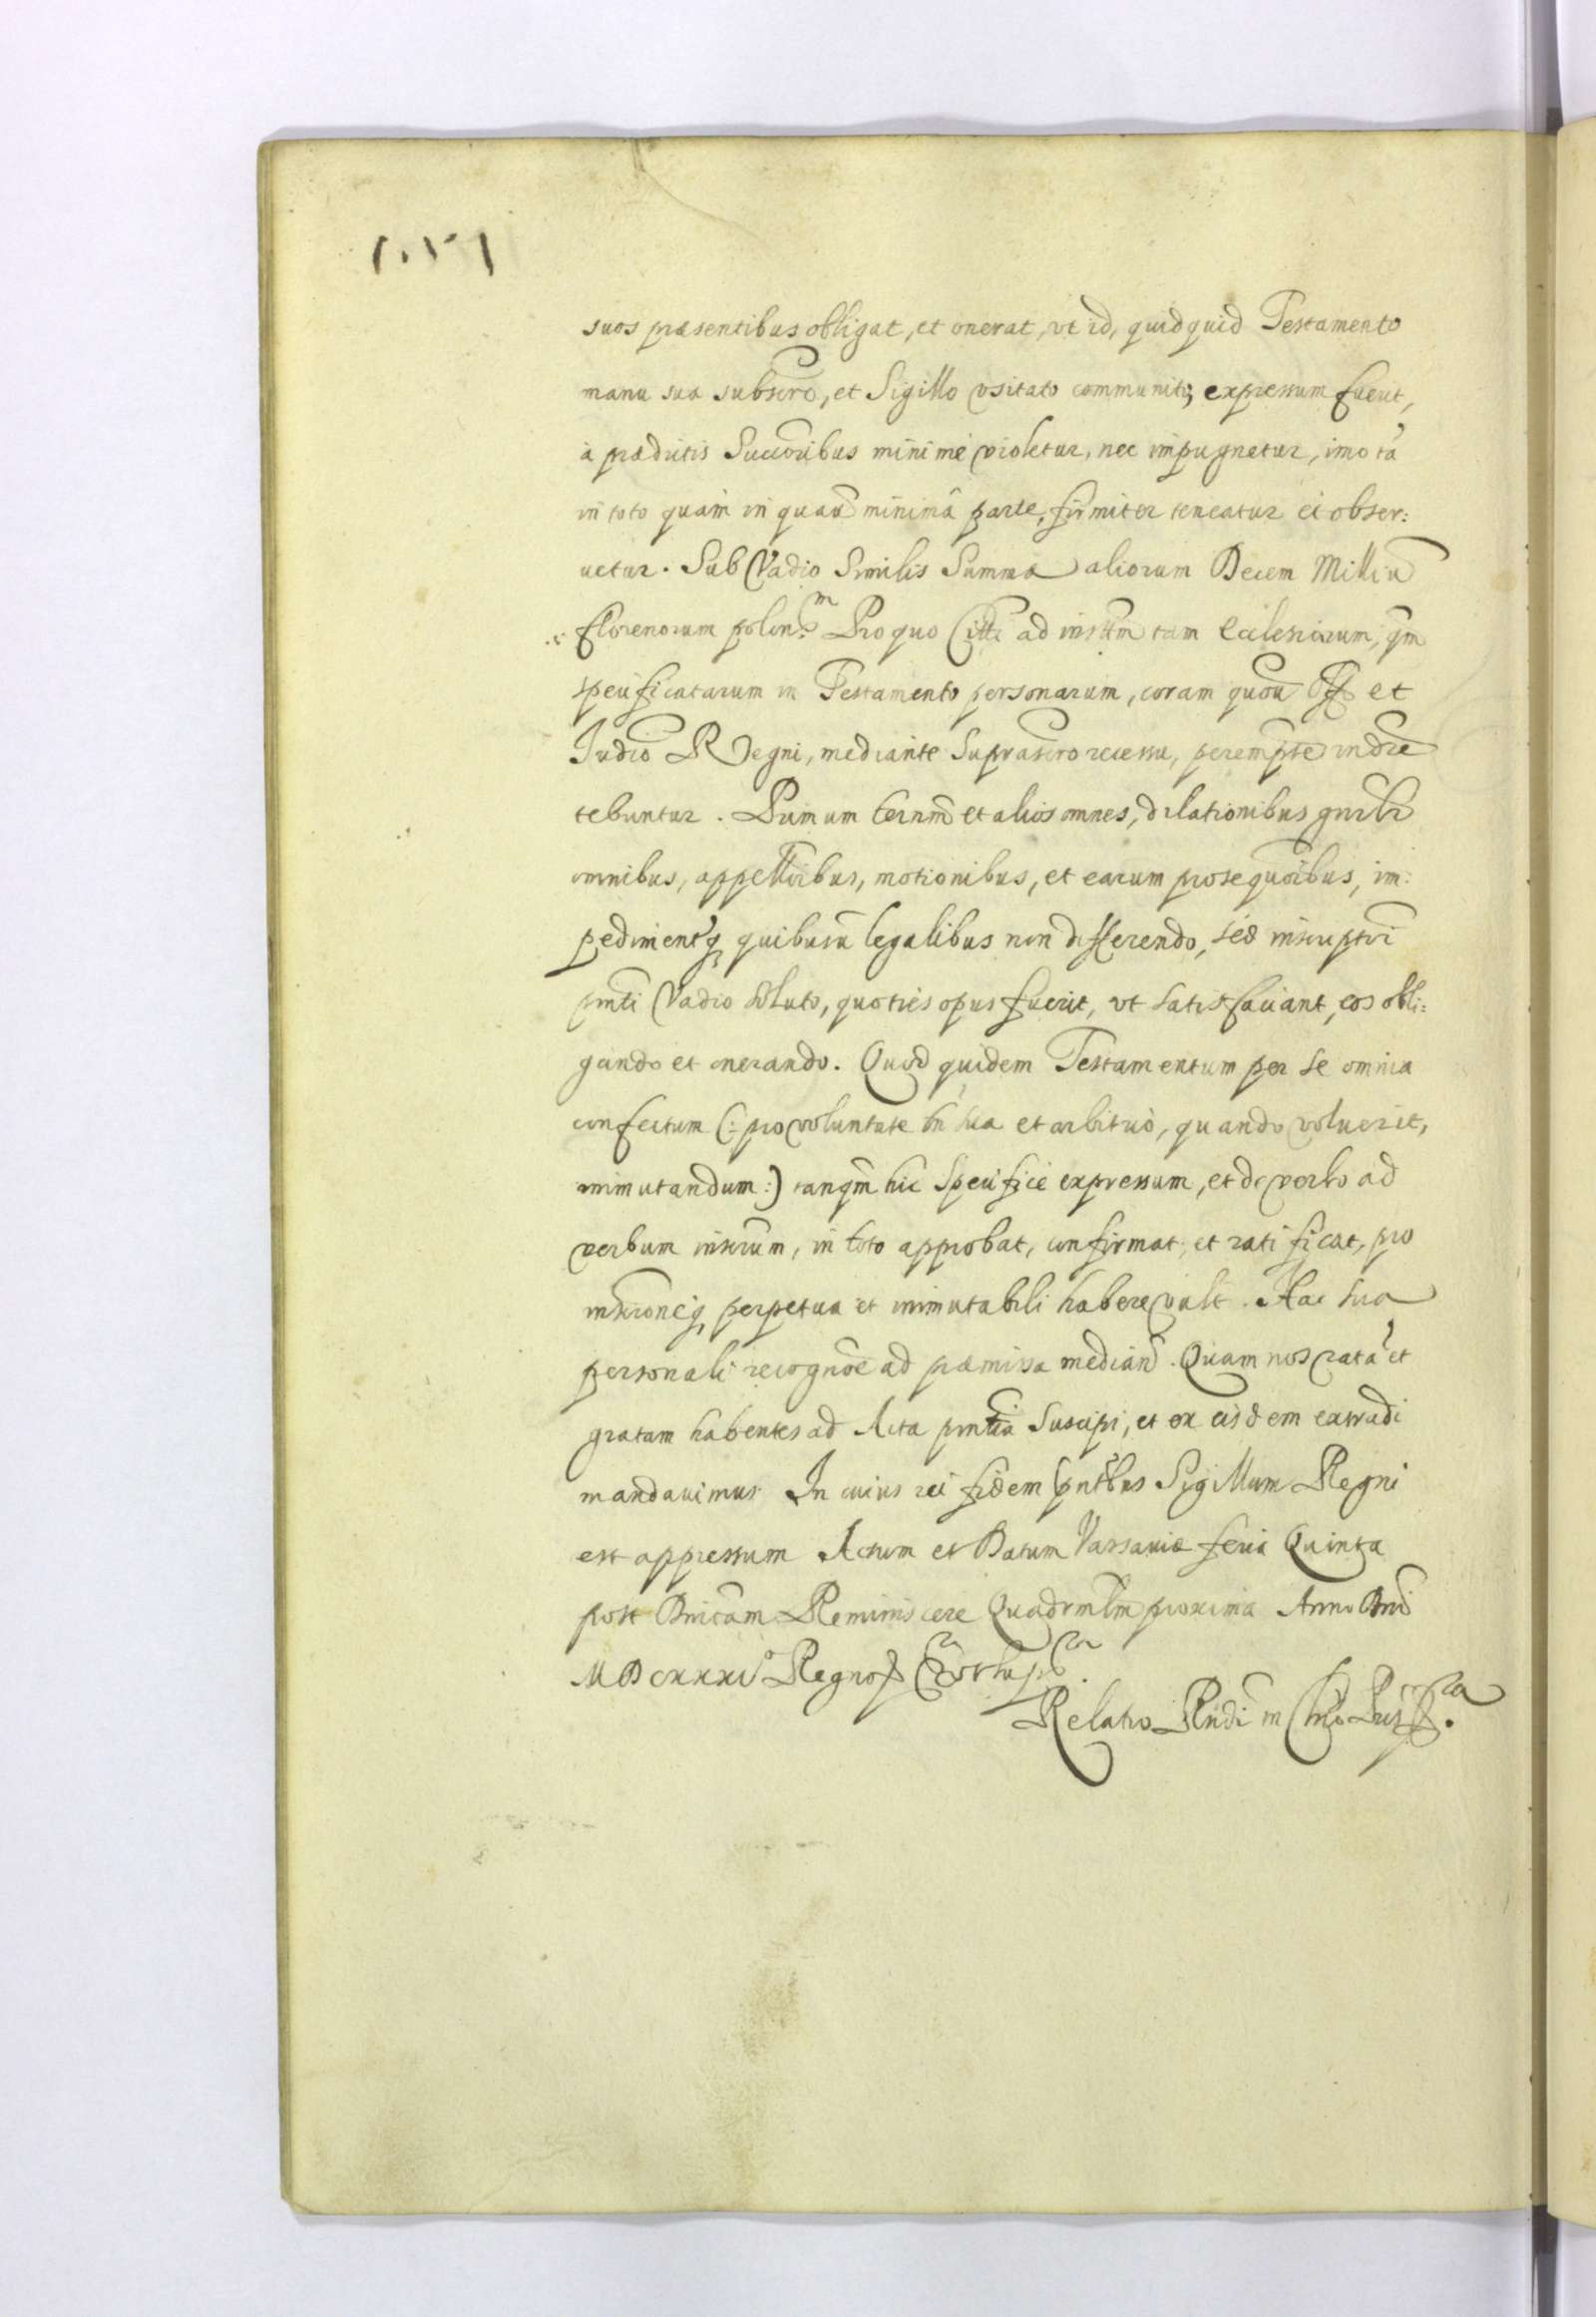 suos præsentibus obligat, et onerat, vt id, quidquid Testamento
manu sua subscrō, et Sigillo vsitato communito, expressum fuerit,
à prædictis Succōribus minimè violetur, nec impugnetur, imo tã
in toto quàm in quavis minimâ parte, firmiter teneatur et obser:
uetur. Sub Vadio Similis Summæ aliorum Decem Milliũ
Florenorum polon. Pro quo Citti ad instm tam Ecclesiarum, qm
specificatarum in Testamento personarum, coram quou Offo et
Judio Regni, mediante Suprascro recessu, perempte
tebuntur. Primum termm et alios omnes, dilationibus gnrlr
omnibus, appellōibus, motionibus, et earum prosequōibus, im:
pedimentq quibusũ legalibus non differendo, sed inscriptōi
pnti Vadio soluto, quoties opus fuerit, vt satisfaciant, eos obli:
gando et onerando. Quod quidem Testamentum per se omnia
confectum (: pro voluntate tñ sua et arbitrio, quando voluerit,
immutandum :) tanqm hic Specificè expressum, et de verbo ad
verbum insrum, in toto approbat, confirmat, et ratificat, pro
perpetua et immutabili habere vult. Hac sua
personali recognōe ad præmissa median. Quam nos ratã et
gratam habentes ad Acta pntia Suscipi, et ex eisdem extradi
mandauimus. In cuius rei fidem pntibus Sigillum Regni
est appressum Actum et Datum Varsauiæ feria Quinta
post Dnicam Reminiscere Quadrmlm proxima Anno Dni
MDCXXXIV Regno
Relatio Rndi in Chro Pris